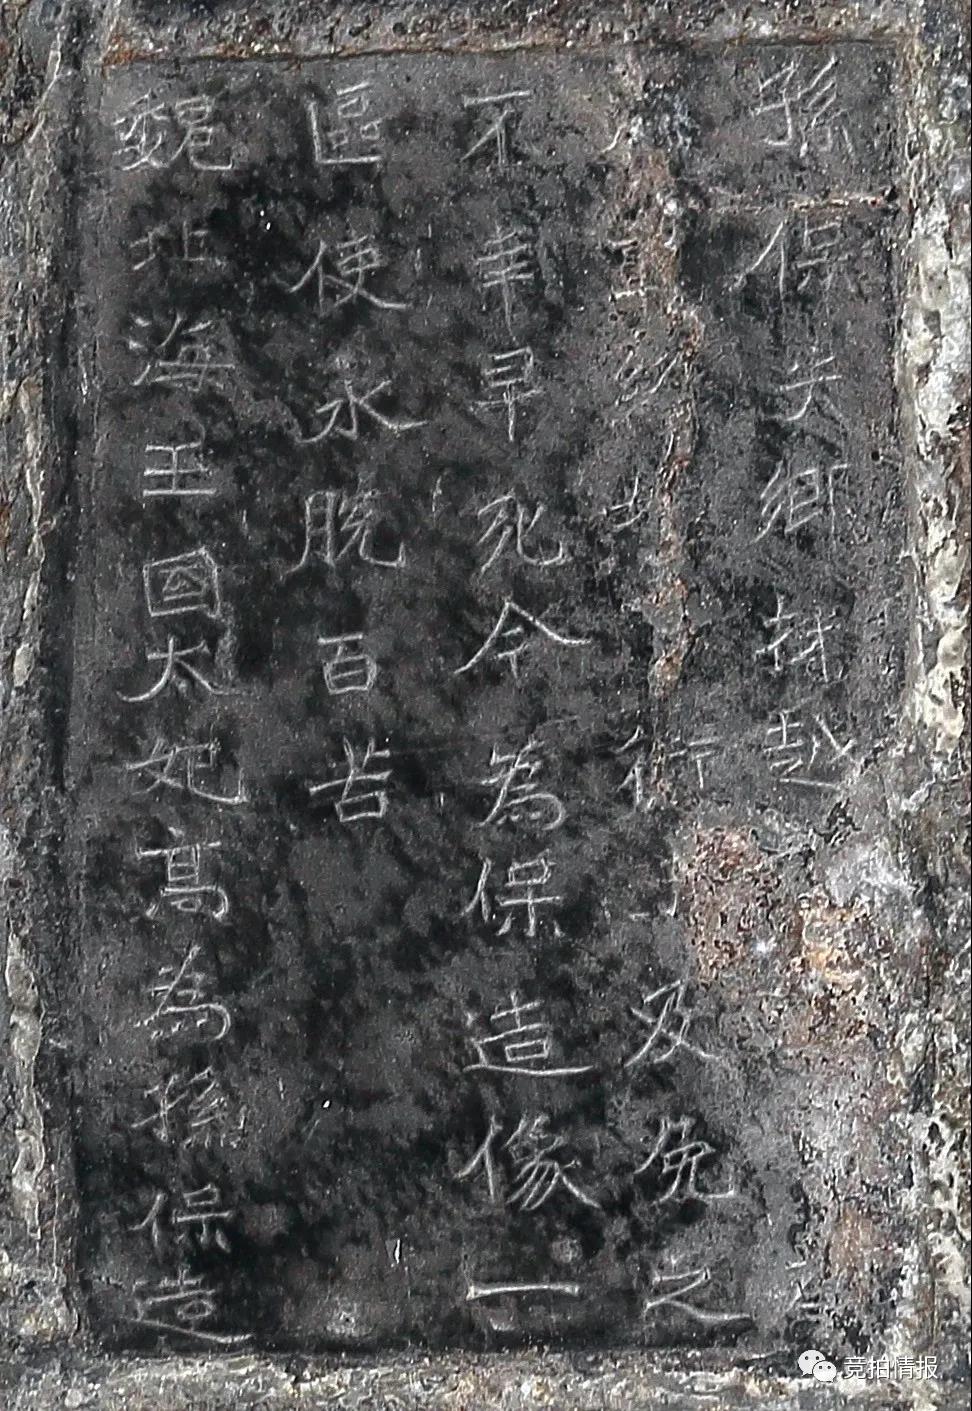 孫保失鄉扶越
行 及免之
不幸早死今為保造像一
區使永脫百苦
魏北海王國太妃高為孫保造
竞拍情报